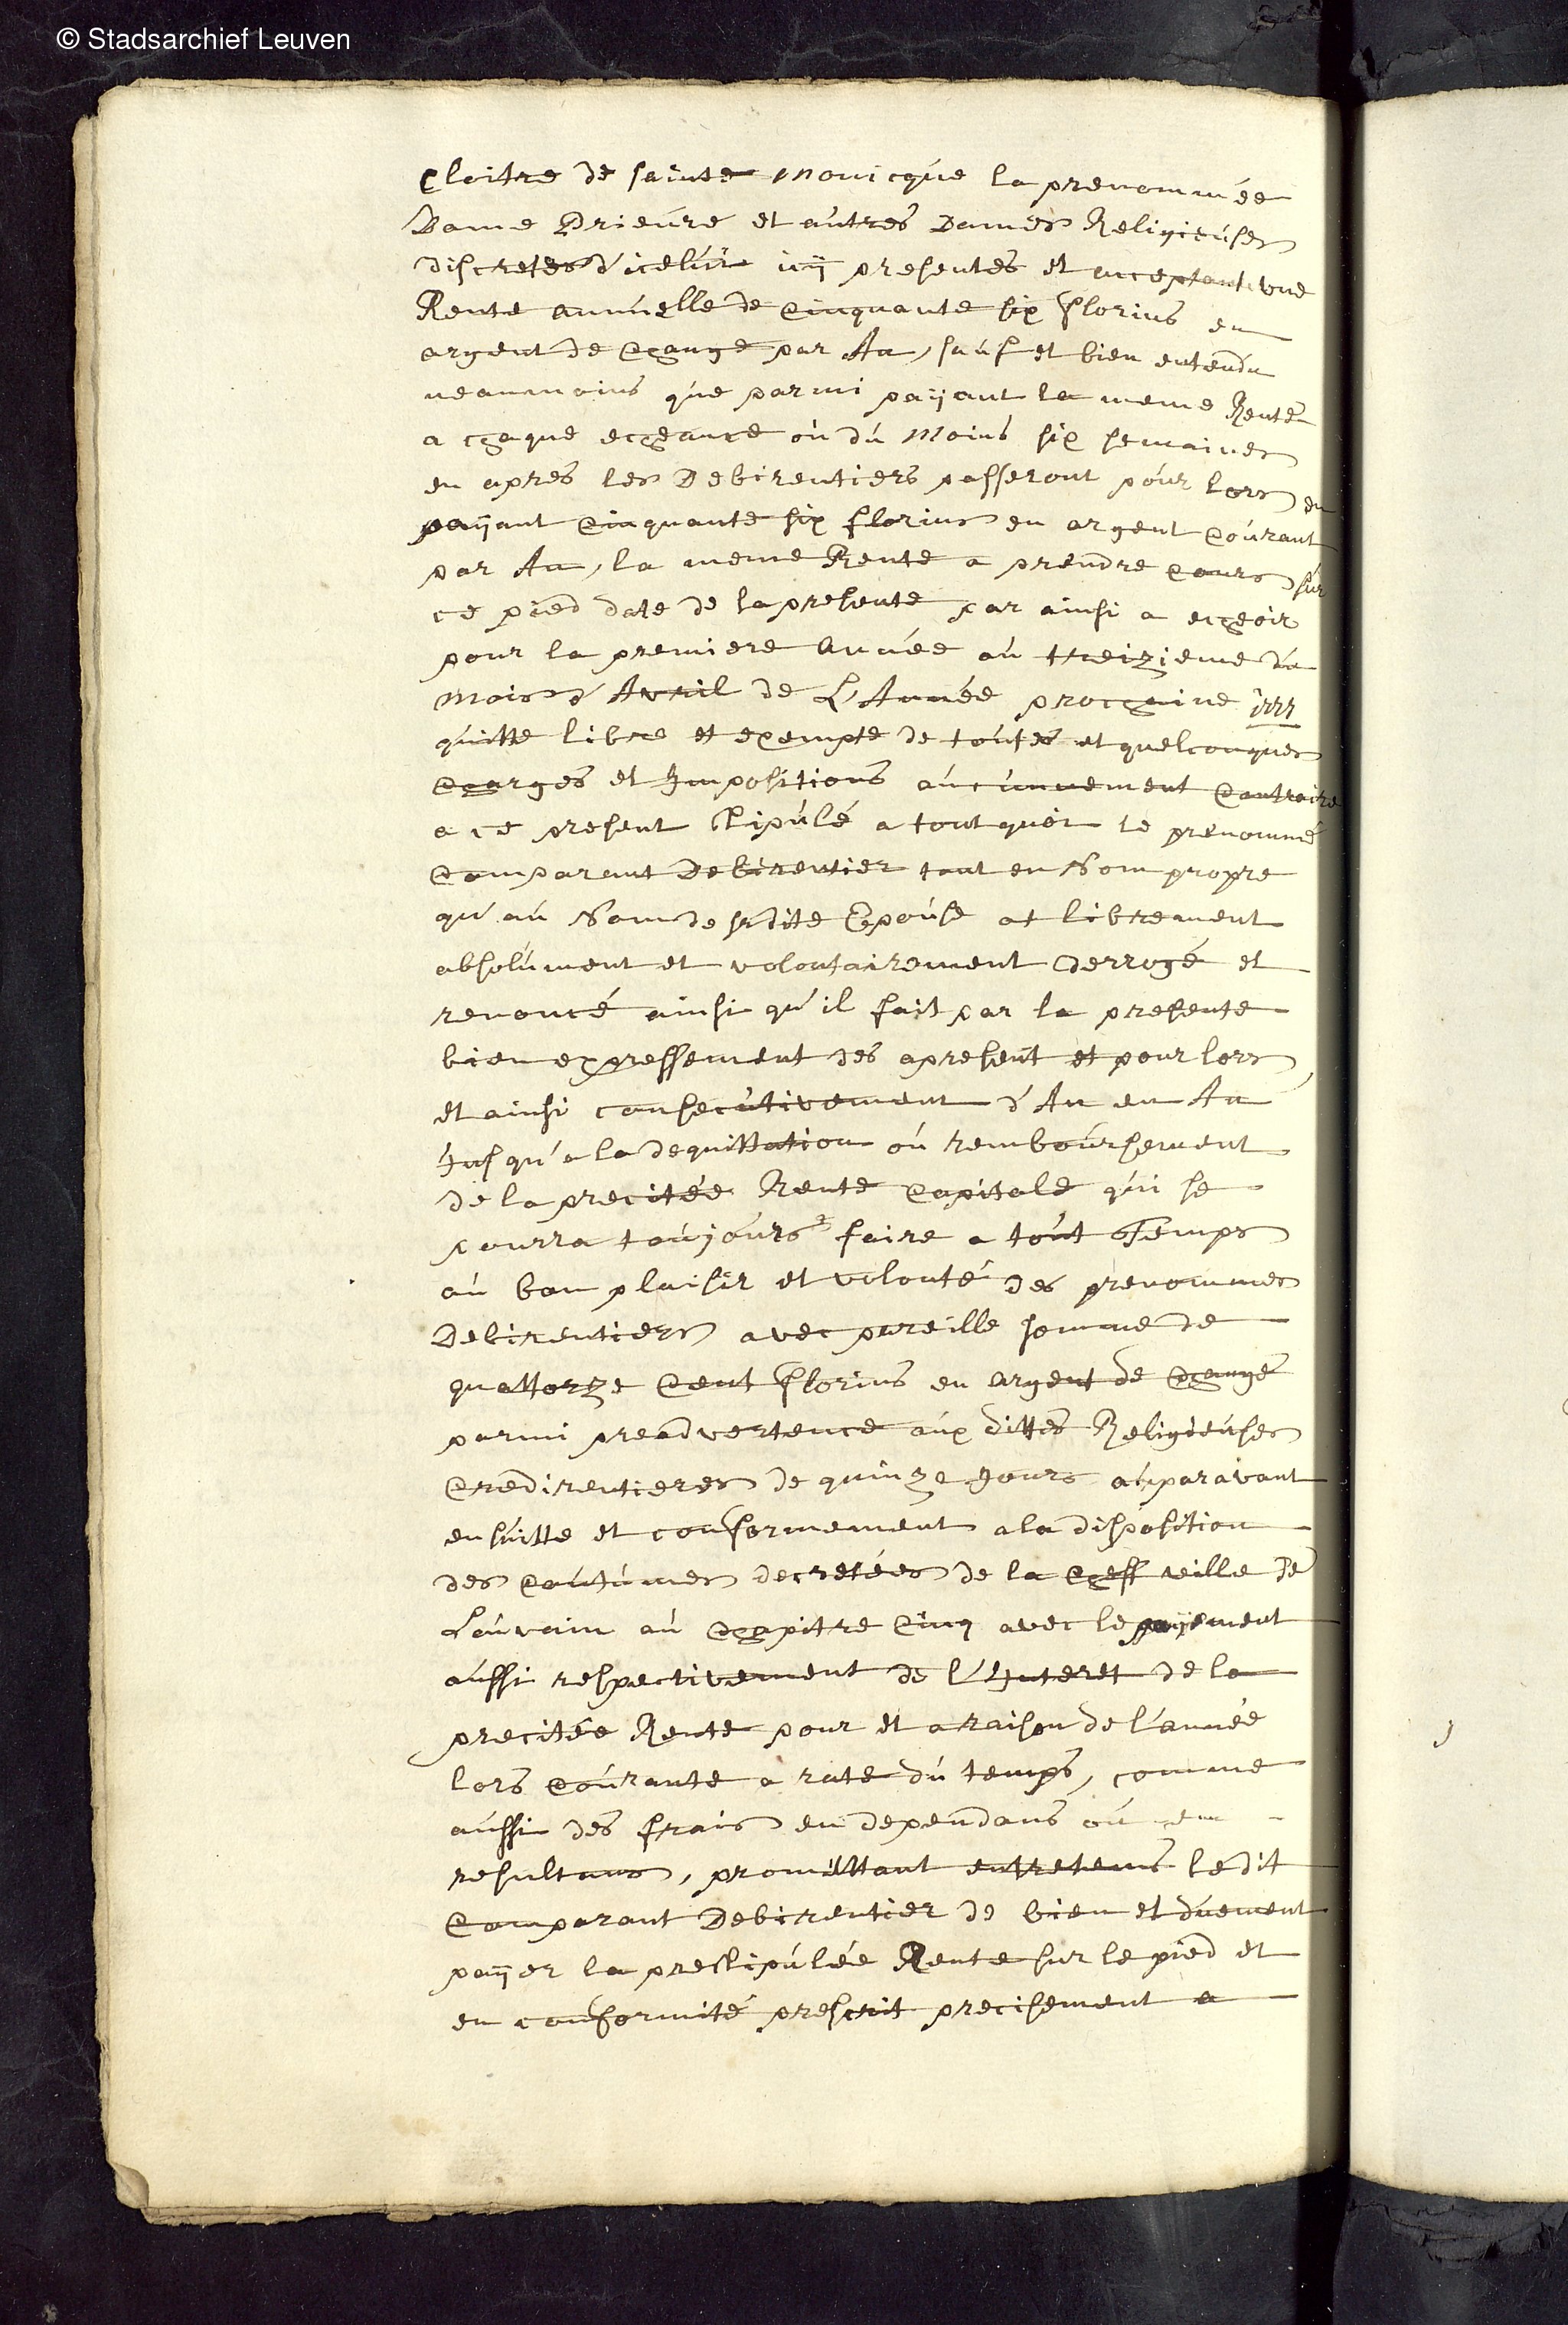 © Stadsarchief Leuven
Cloitre de sainte Monicque la prenommée
Dame Prieure et autres Dames Religieuses
discretes d'iceluÿ icÿ presentes et acceptant une
Rente annuelle de Cinquante six florins en
argent de Change par An, sauf et bien entendu
neanmoins que parmi paÿant la meme Rente
a chaque echeance ou du Moins six semaines
en apres les Debirentiers passeront pour lors en
paÿant Cinquante six florins en argent Courant
par An, la meme Rente a prendre Cours sur
ce pied date de la presente par ainsi a echeoir
pour la premiere Année au treizieme du
Mois d'Avril de L'Année prochaine 1777
quitte libre et exempte de toutes et quelconques
Charges et Impositions aucunnement Contraire
a ce present stipulé a tout quoi le prenommé
Comparant Debirentier tant en Nom propre
qu'au Nom de sadite Epouse at librement
absolument et volontairement derrogé et
renoncé ainsi qu'il fait par la presente
bien expressement des apresent et pour lors
et ainsi consecutivement d'An en An
Jusqu'a la dequittation ou remboursement
de la precitée Rente Capitale qui se
pourra toujours faire a tout Temps
au bon plaisir et volonté des prenommes
Debirentiers avec pareille somme de
quattorze Cent florins en argent de Change
parmi preadvertence aux dittes Religieuses
Credirentieres de quinze Jours auparavant
en suitte et conformement a la disposition
des Coutumes decretées de la Cheff ville de
Louvain au Chapitre Cinq avec le paÿement
aussi respectivement de l'Interet de la
precitée Rente pour et a raison de l'année
lors Courante a rate du temps, comme
aussi des frais en dependans ou en
resultans, promettant entretems ledit
Comparant Debirentier de bien et duement
paÿer la prestipulée Rente sur le pied et
en conformité prescrit precisement a